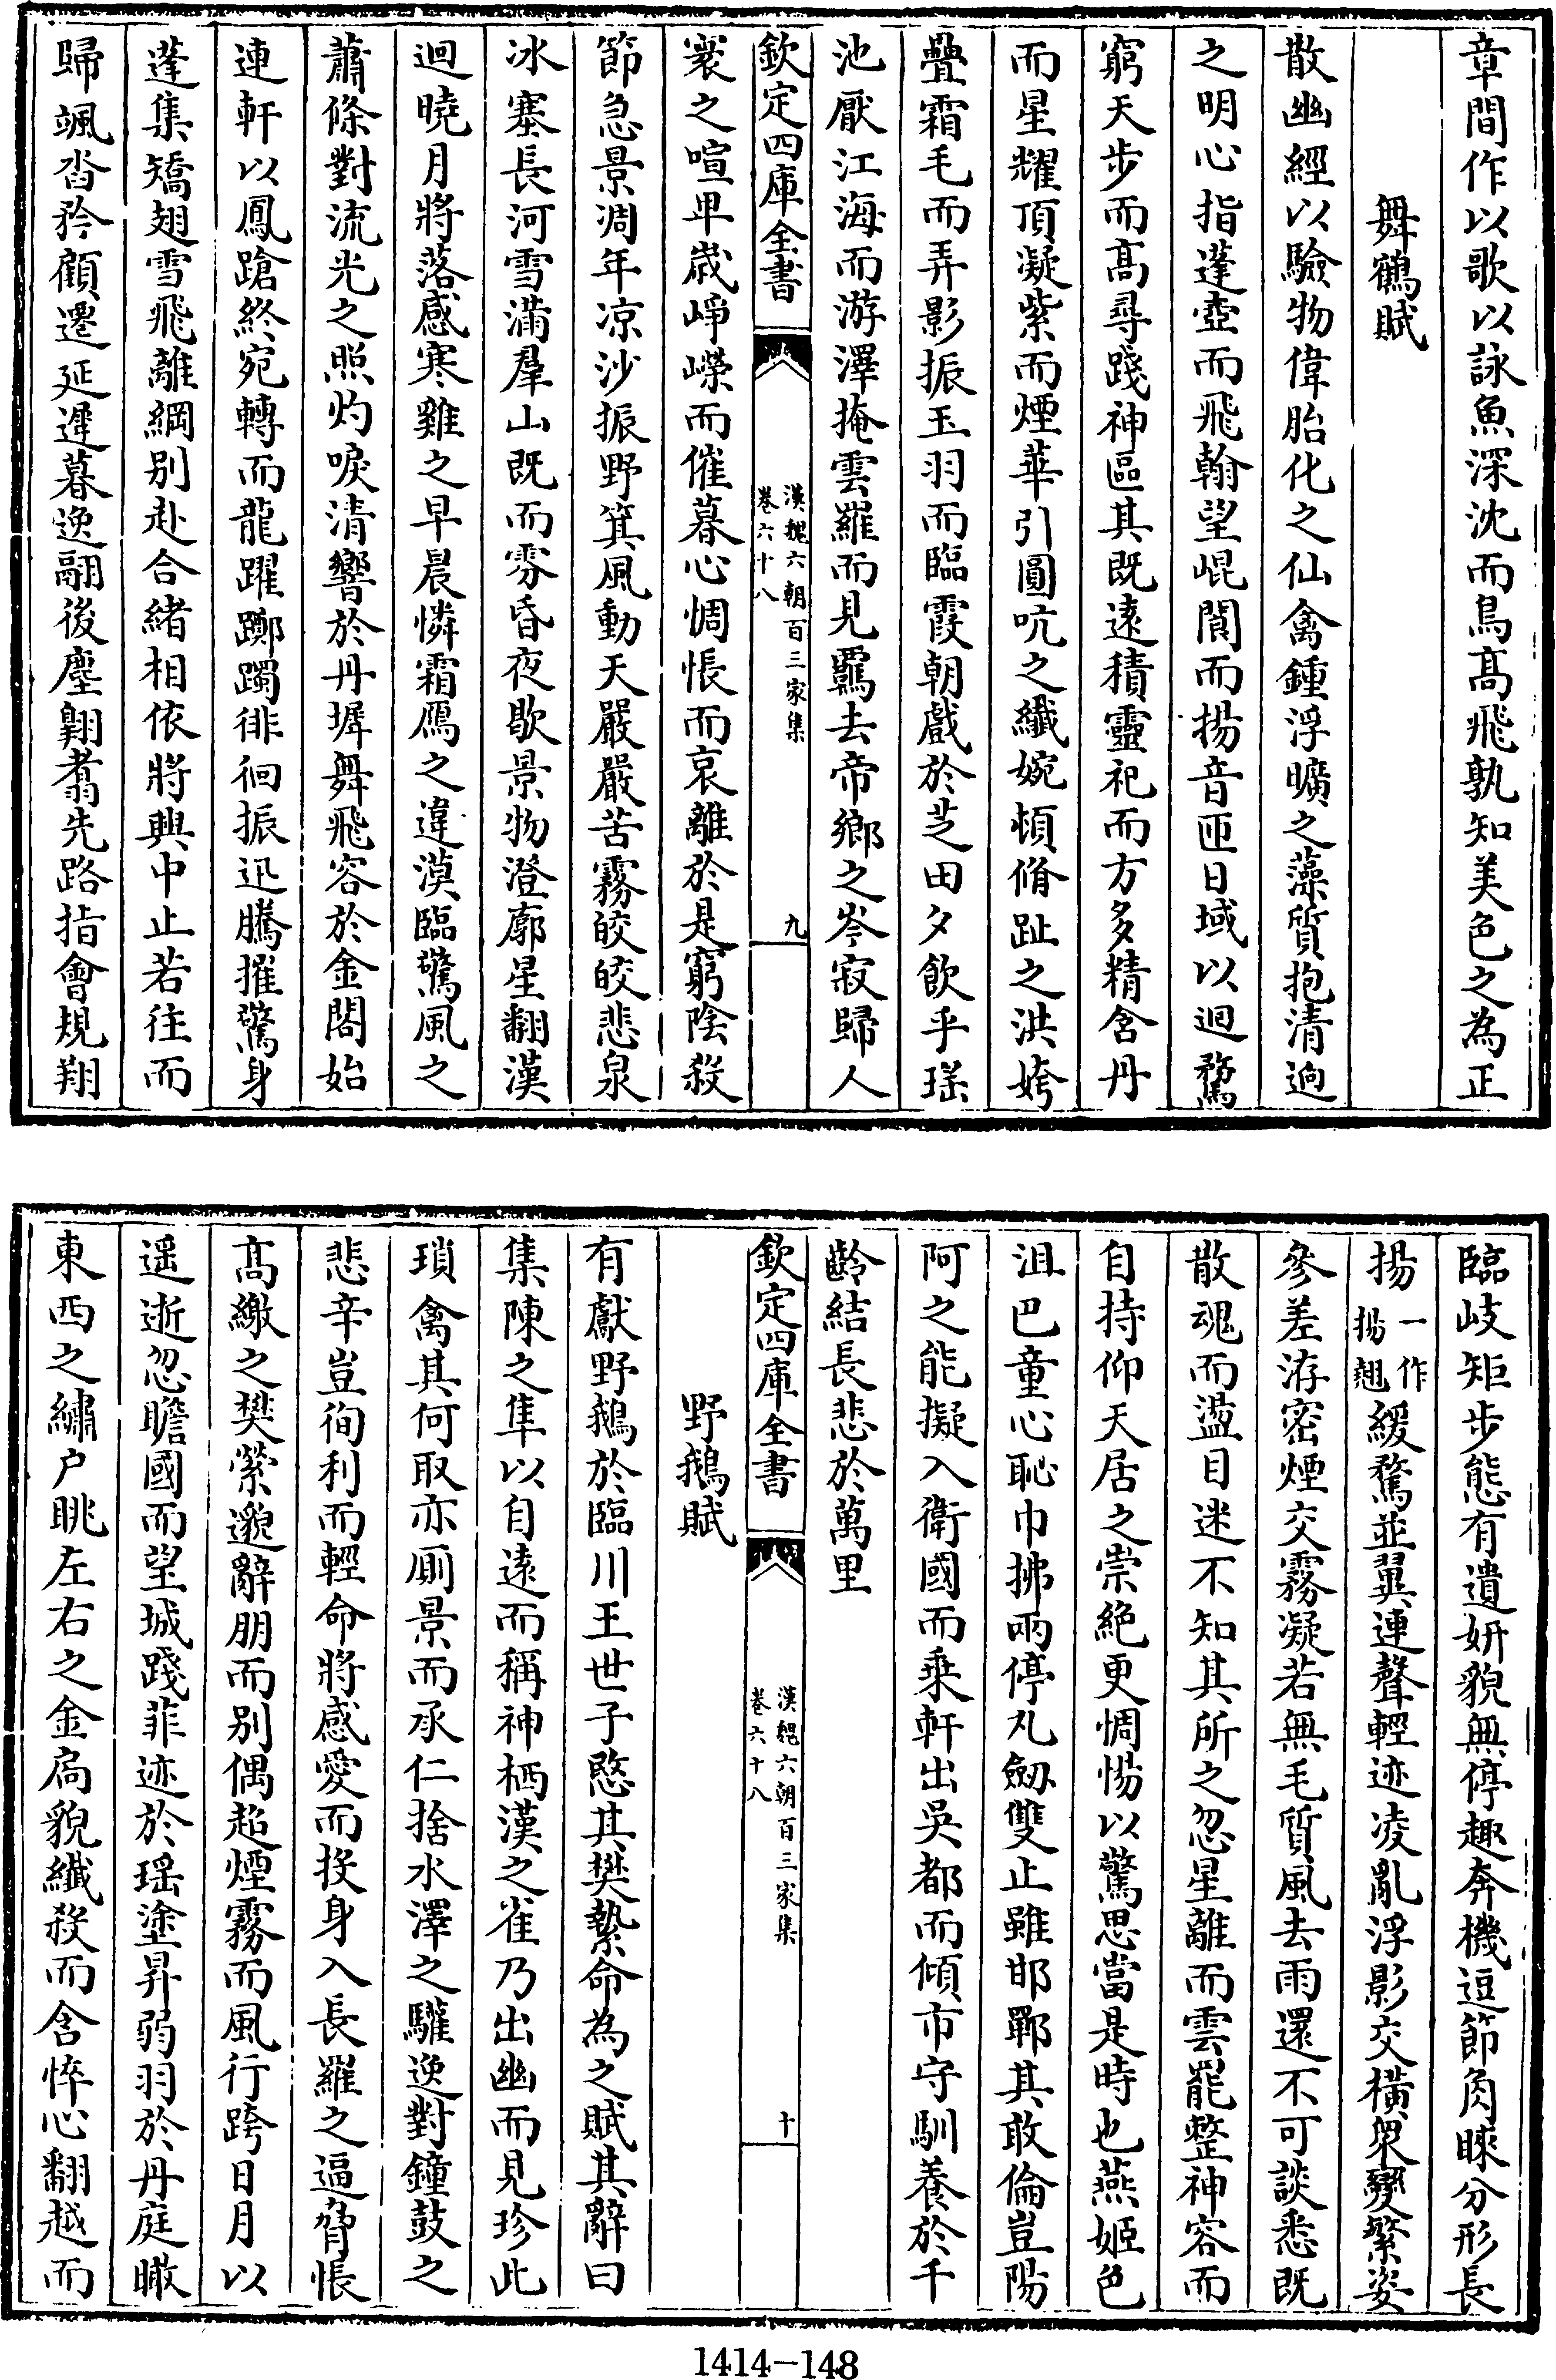 章間作以歌以詠魚深沈而鳥髙飛孰知美色之為正
舞鶴賦
散幽經以驗物偉胎化之仙禽鍾浮曠之藻質抱清迥
之明心指蓬壺而飛翰望崐閬而揚音匝日域以迴騖
窮天步而髙尋踐神區其既遠積靈祀而方多精含丹
而星耀頂凝紫而煙華引圓吭之纎婉頓脩趾之洪姱
疊霜毛而弄影振玉羽而臨霞朝戲於芝田夕飲乎瑤
池厭江海而游澤掩雲羅而見羈去帝鄉之岑寂歸人
欽定四庫全書
漢魏六朝百三家集
卷六十八
九
寰之喧卑歳崢嶸而催暮心惆悵而哀離於是窮陰殺
節急景凋年凉沙振野箕風動天嚴嚴苦霧皎皎悲泉
冰塞長河雪滿羣山既而雰昏夜歇景物澄廓星翻漢
迴曉月將落感寒雞之早晨憐霜鴈之違漠臨驚風之
蕭條對流光之照灼唳清響於丹墀舞飛容於金閣始
連軒以鳳蹌終宛轉而龍躍躑躅徘徊振迅騰摧驚身
蓬集矯翅雪飛離綱别赴合緒相依將興中止若往而
歸颯沓矜顧遷延遲暮逸翮後塵翺翥先路指會規翔
臨岐矩步態有遺妍貌無停趣奔機逗節角睞分形長
揚一作揚翹緩騖並翼連聲輕迹凌亂浮影交横衆變繁姿
參差洊密煙交霧凝若無毛質風去雨還不可談悉既
散魂而盪目迷不知其所之忽星離而雲罷整神容而
自持仰天居之崇絶更惆惕以驚思當是時也燕姬色
沮巴童心恥巾拂兩停丸劒雙止雖邯鄲其敢倫豈陽
阿之能擬入衛國而乘軒出吳都而傾市守馴養於千
齡結長悲於萬里
欽定四庫全書
漢魏六朝百三家集
卷六十八
十
野鵝賦
有獻野鵝於臨川王世子愍其樊縶命為之賦其辭曰
集陳之隼以自遠而稱神栖漢之雀乃出幽而見珍此
瑣禽其何取亦厠景而承仁捨水澤之驩逸對鐘鼓之
悲辛豈徇利而輕命將感愛而投身入長羅之逼脅悵
髙繳之樊縈邈辭朋而别偶超煙霧而風行跨日月以
遥逝忽瞻國而望城踐菲迹於瑶塗昇弱羽於丹庭瞰
東西之繡户眺左右之金扃貌纎殺而含悴心翻越而
1414-148